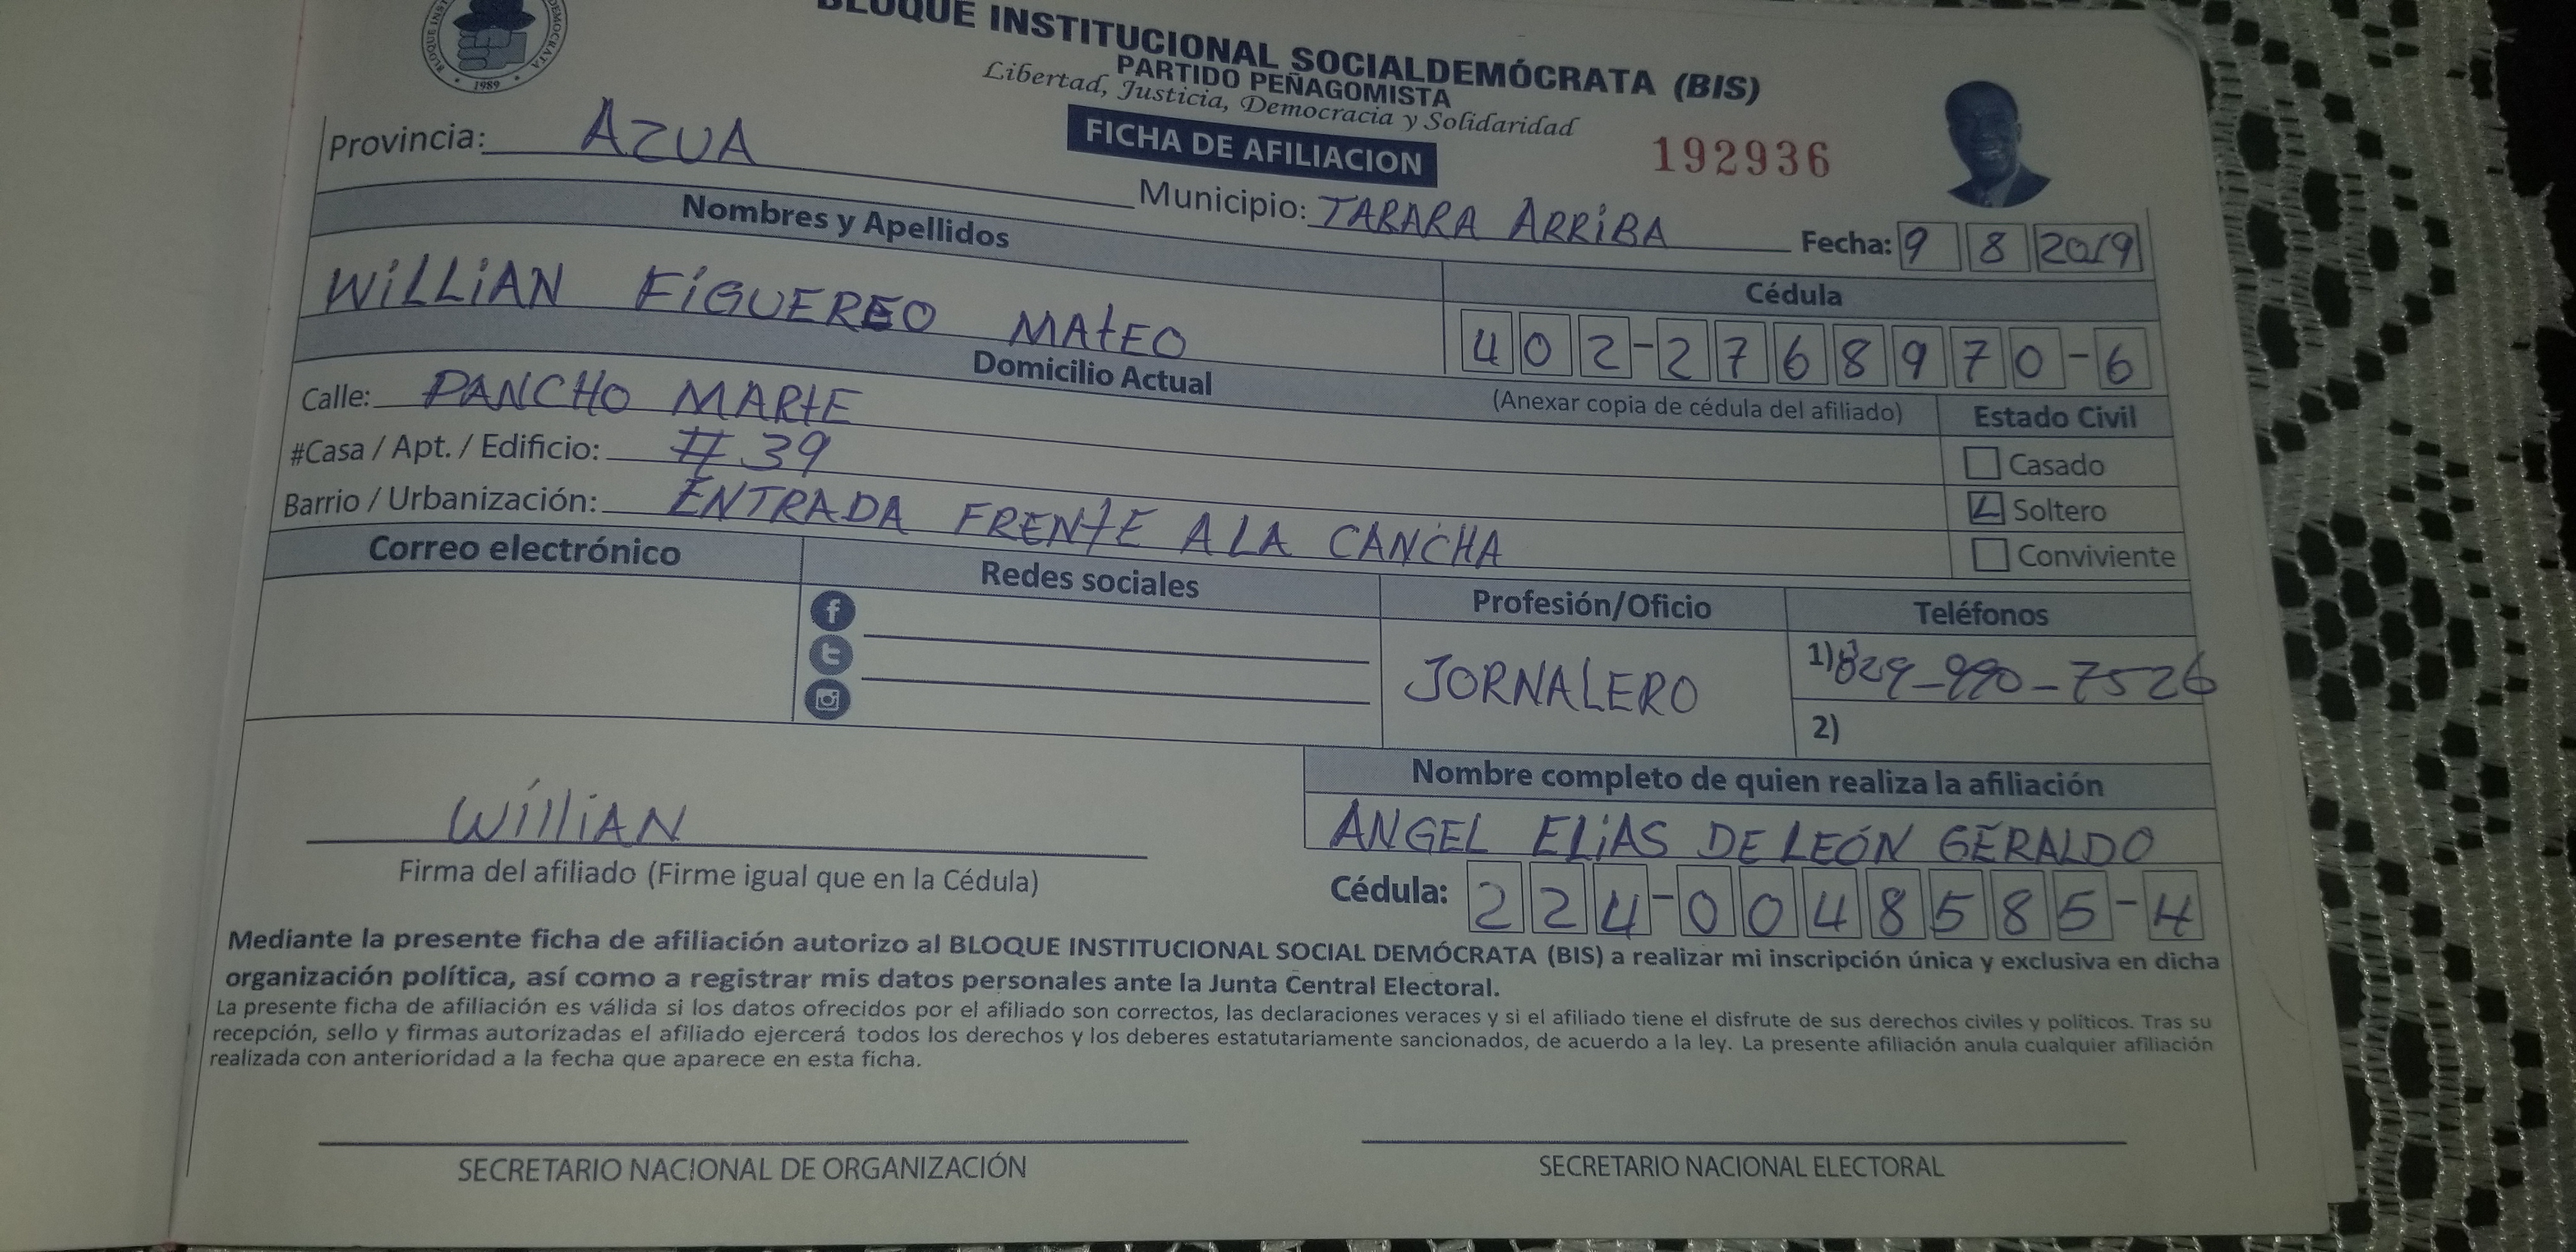 BLOQUE INSTITUCIONAL SOCIALDEMÓCRATA (BIS)
PARTIDO PEÑAGOMISTA
Libertad, Justicia, Democracia y Solidaridad
1989
FICHA DE AFILIACION
192936
Provincia: AZUA
Municipio: TABARA ARRIBA
Fecha: 9 8 2019
Nombres y Apellidos
Cédula
WILLIAN FIGUEREO MATEO
402-2768970-6
Domicilio Actual
(Anexar copia de cédula del afiliado)
Estado Civil
Calle: PANCHO MARTE
Casado
#Casa / Apt. / Edificio: #39
Soltero
Barrio / Urbanización: ENTRADA FRENTE A LA CANCHA
Conviviente
Correo electrónico
Redes sociales
Profesión/Oficio
Teléfonos
JORNALERO
1) 829-990-7526
2)
Nombre completo de quien realiza la afiliación
WilliAN
ANGEL ELIAS DE LEÓN GERALDO
Firma del afiliado (Firme igual que en la Cédula)
Cédula: 224-0048585-4
Mediante la presente ficha de afiliación autorizo al BLOQUE INSTITUCIONAL SOCIAL DEMÓCRATA (BIS) a realizar mi inscripción única y exclusiva en dicha
organización política, así como a registrar mis datos personales ante la Junta Central Electoral.
La presente ficha de afiliación es válida si los datos ofrecidos por el afiliado son correctos, las declaraciones veraces y si el afiliado tiene el disfrute de sus derechos civiles y políticos. Tras su
recepción, sello y firmas autorizadas el afiliado ejercerá todos los derechos y los deberes estatutariamente sancionados, de acuerdo a la ley. La presente afiliación anula cualquier afiliación
realizada con anterioridad a la fecha que aparece en esta ficha.
SECRETARIO NACIONAL DE ORGANIZACIÓN
SECRETARIO NACIONAL ELECTORAL